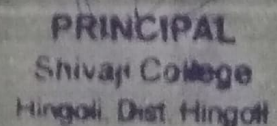 PRINCIPAL
Shivaji College
Hingoli, Dist. Hingoli